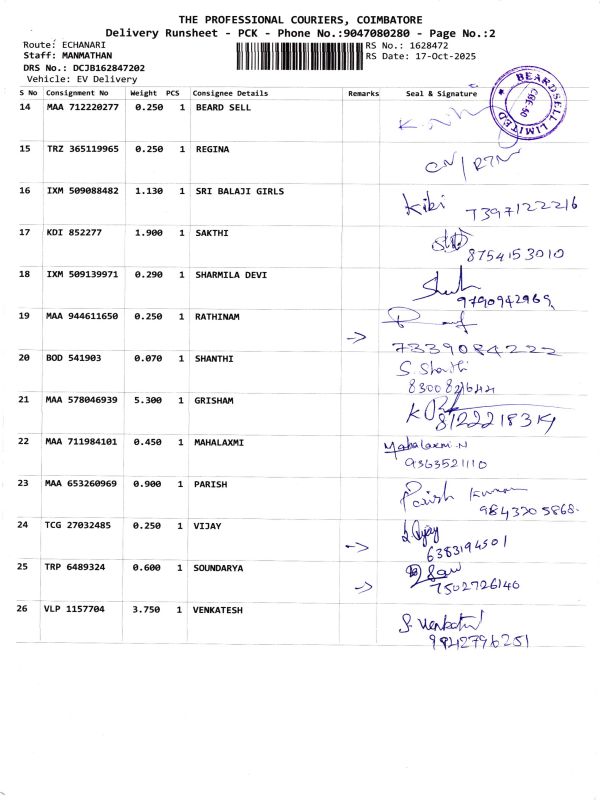 THE PROFESSIONAL COURIERS, COIMBATORE
Delivery Runsheet - PCK - Phone No.:9047080280 - Page No.:2
Route: ECHANARI RS No.: 1628472
Staff: MANMATHAN RS Date: 17-Oct-2025
DRS No.: DCJB162847202
Vehicle: EV Delivery
S No Consignment No Weight PCS Consignee Details Remarks Seal & Signature
BEARDSELL LIMITED
CBE-50
14 MAA 712220277 0.250 1 BEARD SELL
15 TRZ 365119965 0.250 1 REGINA
CN/RTN
16 IXM 509088482 1.130 1 SRI BALAJI GIRLS
Kiki 7397122216
17 KDI 852277 1.900 1 SAKTHI
8754153010
18 IXM 509139971 0.290 1 SHARMILA DEVI
9790942969
19 MAA 944611650 0.250 1 RATHINAM
->
7339084222
20 BOD 541903 0.070 1 SHANTHI
S. Shanthi
8300821644
21 MAA 578046939 5.300 1 GRISHAM
22 MAA 711984101 0.450 1 MAHALAXMI
Mahalaxmi.N
9363521110
23 MAA 653260969 0.900 1 PARISH
Parish Kumar
9843205868.
24 TCG 27032485 0.250 1 VIJAY
->
6383194501
25 TRP 6489324 0.600 1 SOUNDARYA
->
7502726146
26 VLP 1157704 3.750 1 VENKATESH
9842796251